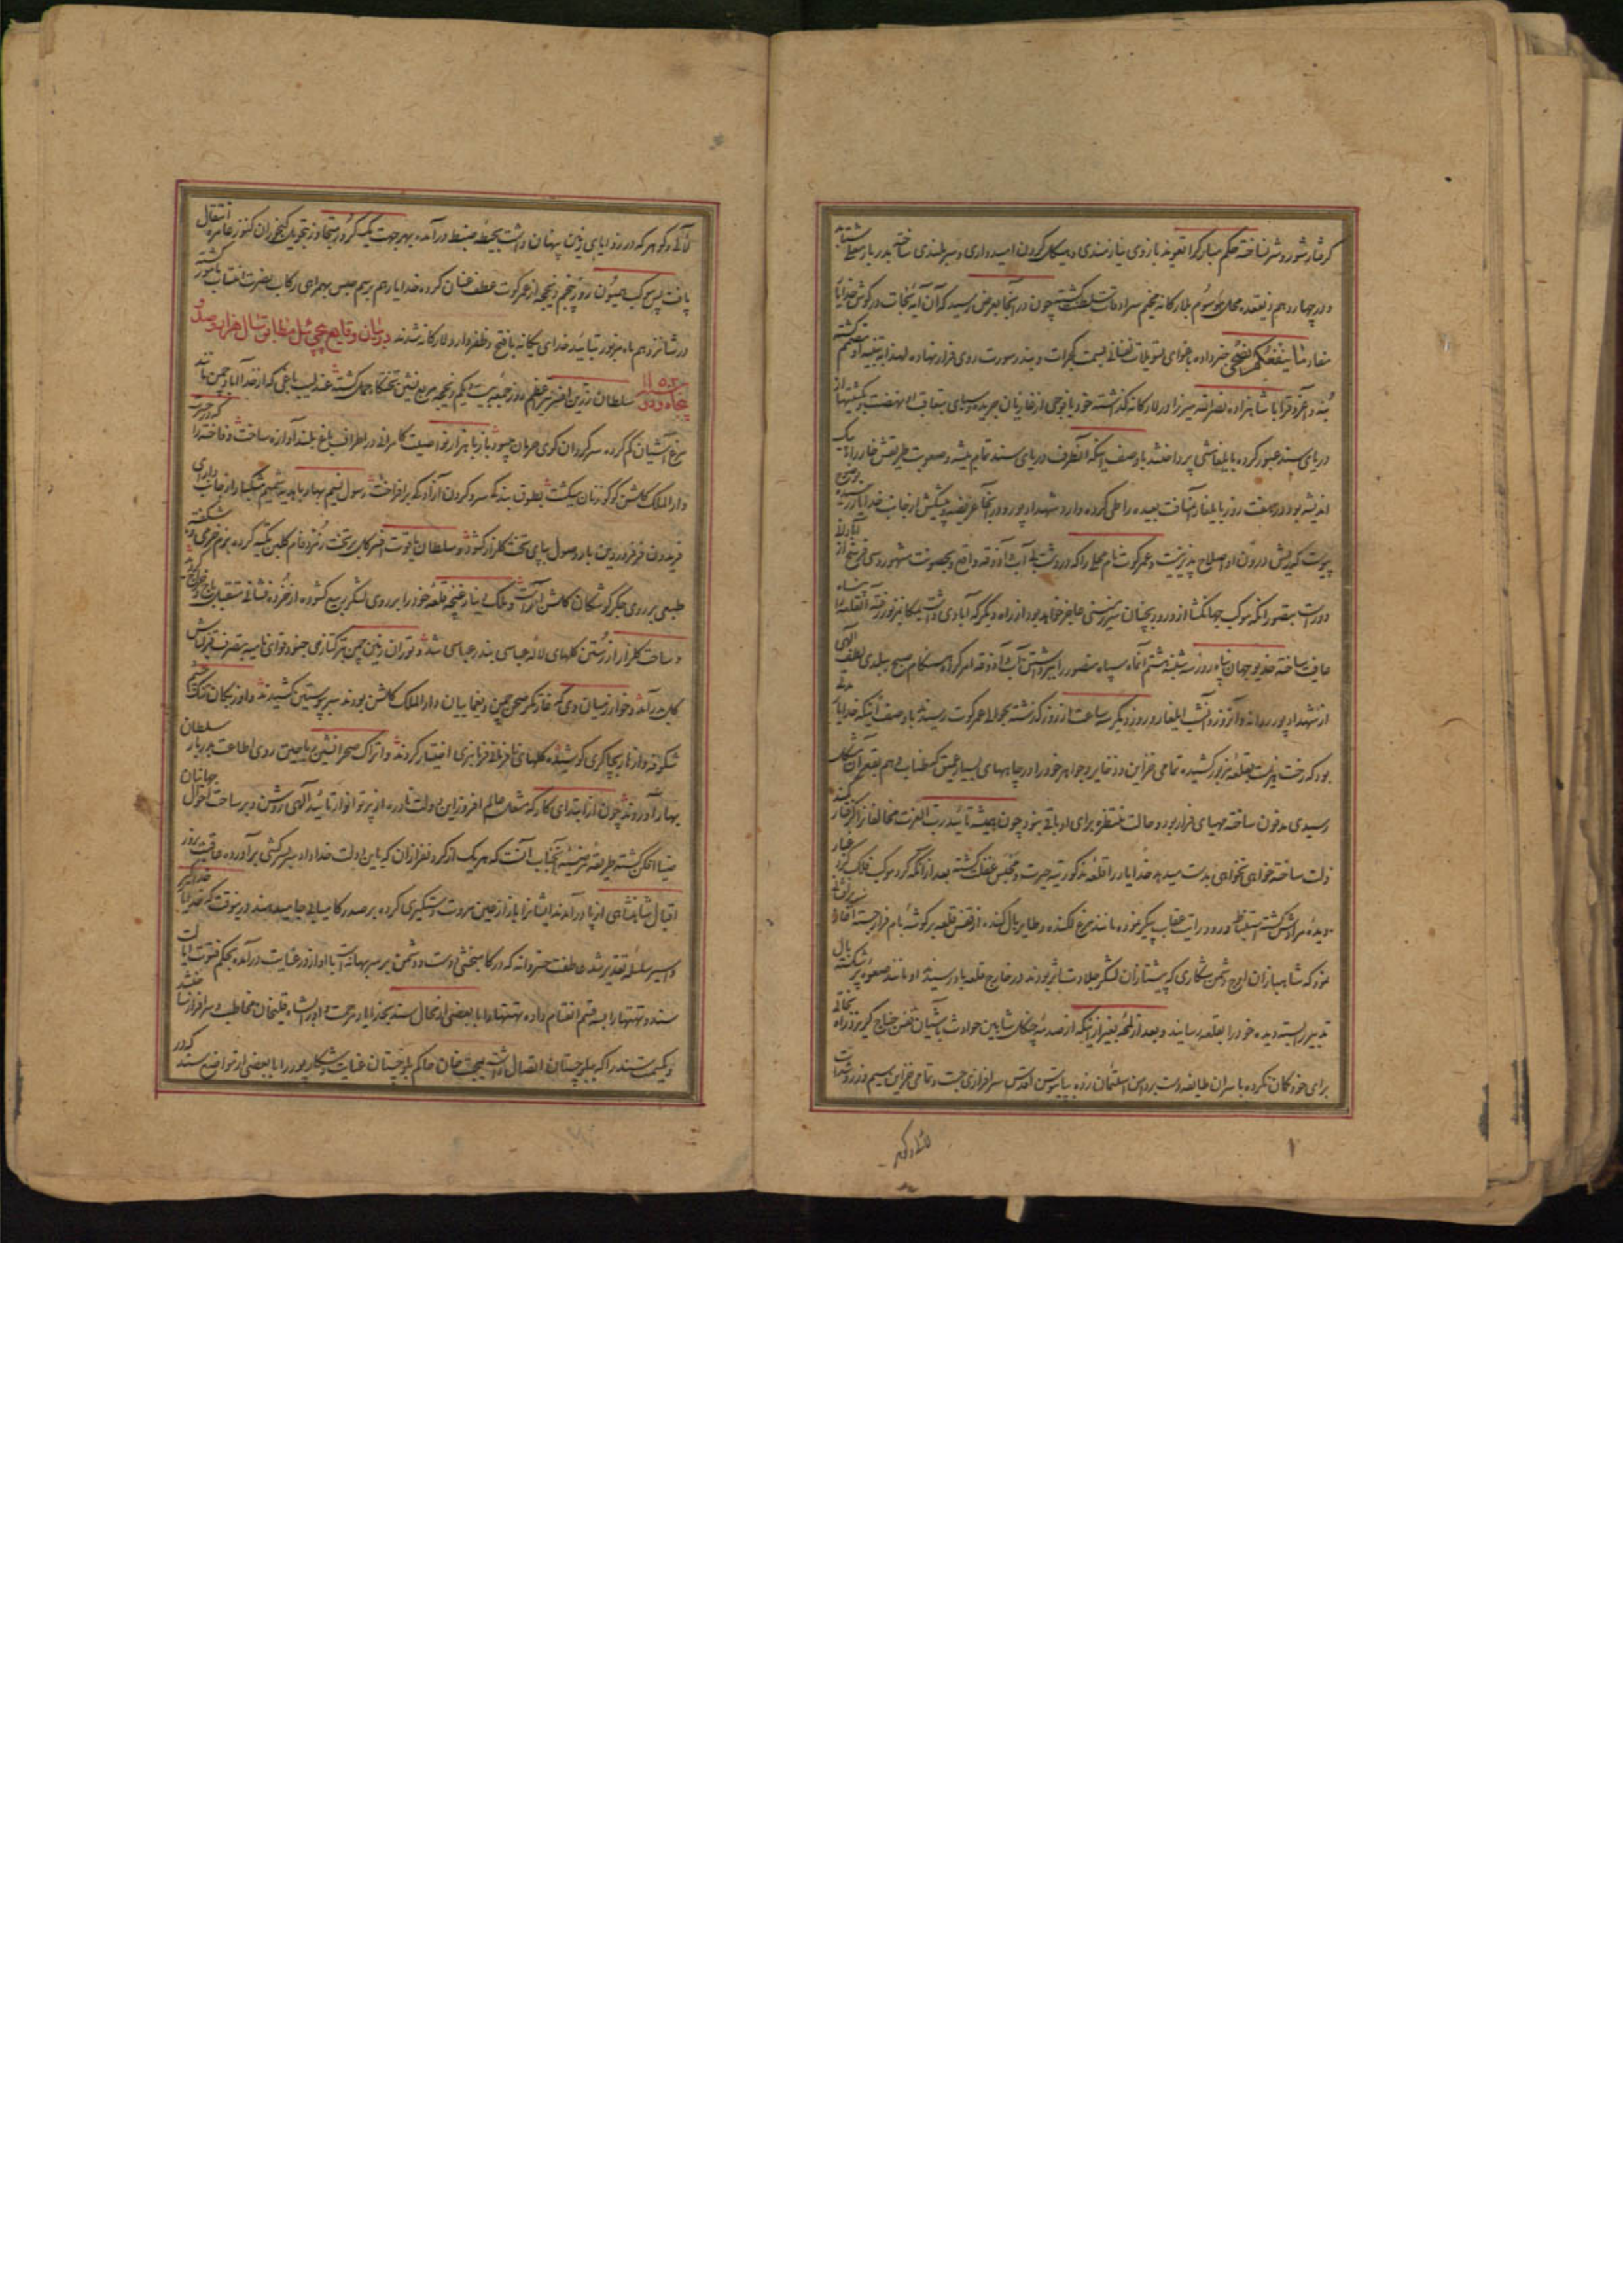 گرفتار شور و شر نساخته حکم مبارک را تعویذ بازوی نیازمندی و هیکل گردن امیدواری و سربلندی ساخته بدربار معلی شتابد
و در چهاردهم ذیقعده محل موسوم بلارکانه مخیم سرادقات سلطنت گشته چون در آنجا بعرض رسید که آن آیه نجات در گوش خدایار
مفاد لا ینفعکم نصحی ضرر داده باغوای تسویلات نفسانی بسمت گجرات و بندر سورت روی فرار نهاده لهذا به تنبیه او مصمم گشته
بنه و اغروق را با شاهزاده نصرالله میرزا در لارکانه گذاشته خود با فوجی از غازیان جریده و سبای بتعاقب او نهضت و بکشتیها از
دریای سند عبور کرده بایلغامشی پرداختند با وصف اینکه آنطرف دریای سند تمام بیشه و صعوبت طریقش خار راه پیک
اندیشه بود در هفت روز بایلغار آن مسافت بعیده را طی کرده وارد شهدادپور و در آنجا عریضه و پیشکش از جانب خدایار رسیده بوضوح
پیوست که ریش درون او اصلاح پذیر نیست و عمرکوت نام محلی را که در دشت بی آب و آذوقه واقع و بحصونت مشهور و سی فرسخ از آبادانی
دور است بتصور اینکه موکب جهانگشا از ورود بچنان سرزمینی عاجز خواهد بود از راه دیگر که آبادی داشت بمکان مزبور رفته آن قلعه را پناه
عافیت ساخته خدیو جهان پناه روز سه شنبه هشتم آنماه سپاه منصور را ببرداشتن آب و آذوقه امر کرده هنگام صبح ببلدی لطف الهی
از شهدادپور روانه و آنروز و آنشب ایلغار و روز دیگر سه ساعت از روز گذشته بحوالی عمرکوت رسیدند با وصف اینکه خدایار مدتی
بود که رخت عزیمت بقلعه مزبور کشیده تمامی خزاین و ذخایر و جواهر خود را در چاههای بسیار عمیق که طناب وهم بقعر آن مشکل
رسیدی مدفون ساخته مهیای فرار بود و حالت منتظره برای او باقی نبود چون همیشه تأیید رب العزت مخالفان را گرفتار کمند
ذلت ساخته خواهی نخواهی بدست میدهد خدایار در قلعه مذکور تیه حیرت و محبس غفلت گشته بعد از آنکه گرد موکب فلک گرد غبار
دیده مرادش گشته استیقاظ و ورود رایت عقاب پیکر نموده مانند مرغ لکنده و طایر بال کنده از قفس قلعه بر گوشه بام فرار جسته آغاز پرافشانی
نمود که شاهبازان اوج دشمن شکاری که پیشتازان لشکر جلادت اثر بودند در خارج قلعه باو رسیدند او مانند صعوه پرشکسته بال
تدبیر را بسته دیده خود را بقلعه رسانید و بعد از لمحه بغیر از اینکه از صدمه چنگال شاهین حوادث بآشیان قفس جناح گریزد راه نجاتی
برای خود گمان نکرده با سران طایفه دست بدامن استیمان زده بپایبوس اقدس سرافرازی جست و تمامی خزاین سیم و زر و
لآلی و گوهر که در زوایای زمین پنهان داشت بحیطه ضبط درآمده بهر جهت یک کرور متجاوز بتحویل گنجوران کنوز عامره انتقال
یافت پس موکب همیون روز پنجم ذیحجه از عمرکوت عطف عنان کرده خدایار هم برسم حبس بهمراهی رکاب نصرت انتساب مأمور گشته
در شانزدهم ماه مزبور بتأیید خدای یگانه با فتح و ظفر وارد لارکانه شدند در بیان وقایع پیچی ئیل مطابق سال هزار و صد و
پنجاه و دو ۱۱۵۲ سلطان زرین افسر نیر اعظم در روز جمعه بیست و یکم ذیحجه مربع نشین تختگاه حمل گشته عندلیب باغی که از خدا آباد چمن مانند
مرغ آشیان گم کرده سرگردان کوی حرمان میبود باز با هزار نوا صیت کامرانی در اطراف باغ بلند آوازه ساخت و فاخته را که در
دارالملک گلشن کوکو زنان میگشت بطوق بندگی سرو گردن آزادگی برافراخت رسول نسیم بهار با هدیه شمیم مشکبار از جانب دارای
فریدون فر فروردین بار وصول بپای تخت گلزار گشود و سلطان یاقوت افسر گل بر تخت زمرد فام گلبن تکیه کرده بزم خرمی و شکفته
طبعی بر روی جگرگوشگان گلشن آراست و ملک یناز غنچه قلعه خود را بر روی لشکر ربیع گشوده از خرده فشانی متقبل باج و خراج گردید
و ساحت گلزار از رستن گلهای لاله عباسی بندر عباسی شد و توران زمین چمن بترکتازی جنود قوای نامیه بتصرف قزلباش
گل درآمد و خوارزمیان دی که غارتگر صحن چمن و یغماییان دارالملک گلشن بودند سر بپوستین کشیدند و اوزبکان تنگ چشم
شکوفه و ازهار بچاکری کوشیده گلهای نافرمان فرمانبری اختیار کردند و اتراک صحرانشین ریاحین روی اطاعت بدربار سلطان
بهار آوردند چون از ابتدای کار که مشعل عالم افروز این دولت نادره از پرتو انوار تأیید الهی روشن و بر ساحت احوال جهانیان
ضیا افکن گشته طریقه مرضیه آنجناب آنست که هر یک از گردنفرازان که باین دولت خداداد بر سرکشی برآورده عاقبت بزور
اقبال شاهنشاهی از پا درآمدند ایشان را باز از عین مروت دستگیری کرده بر صدر کامیابی جا میدهند درینوقت که خدایار
و اسیر سلسله تقدیر شد عاطفت خسروانه که در کامبخشی دوست و دشمن بر سر بهانه است با او از در عنایت درآمده بحکم فتوت ایالت
سند و تهتهه را بسه قسم انقسام داده تهتهه را با بعضی از محال سند بخدایار مرحمت و او را بشاه قلیخان مخاطب و سرافراز ساختند
و یک قسمت سند را که ببلوچستان اتصال داشت بمحبت خان حاکم بلوچستان عنایت و شکارپور را با بعضی از مواضع سند که در